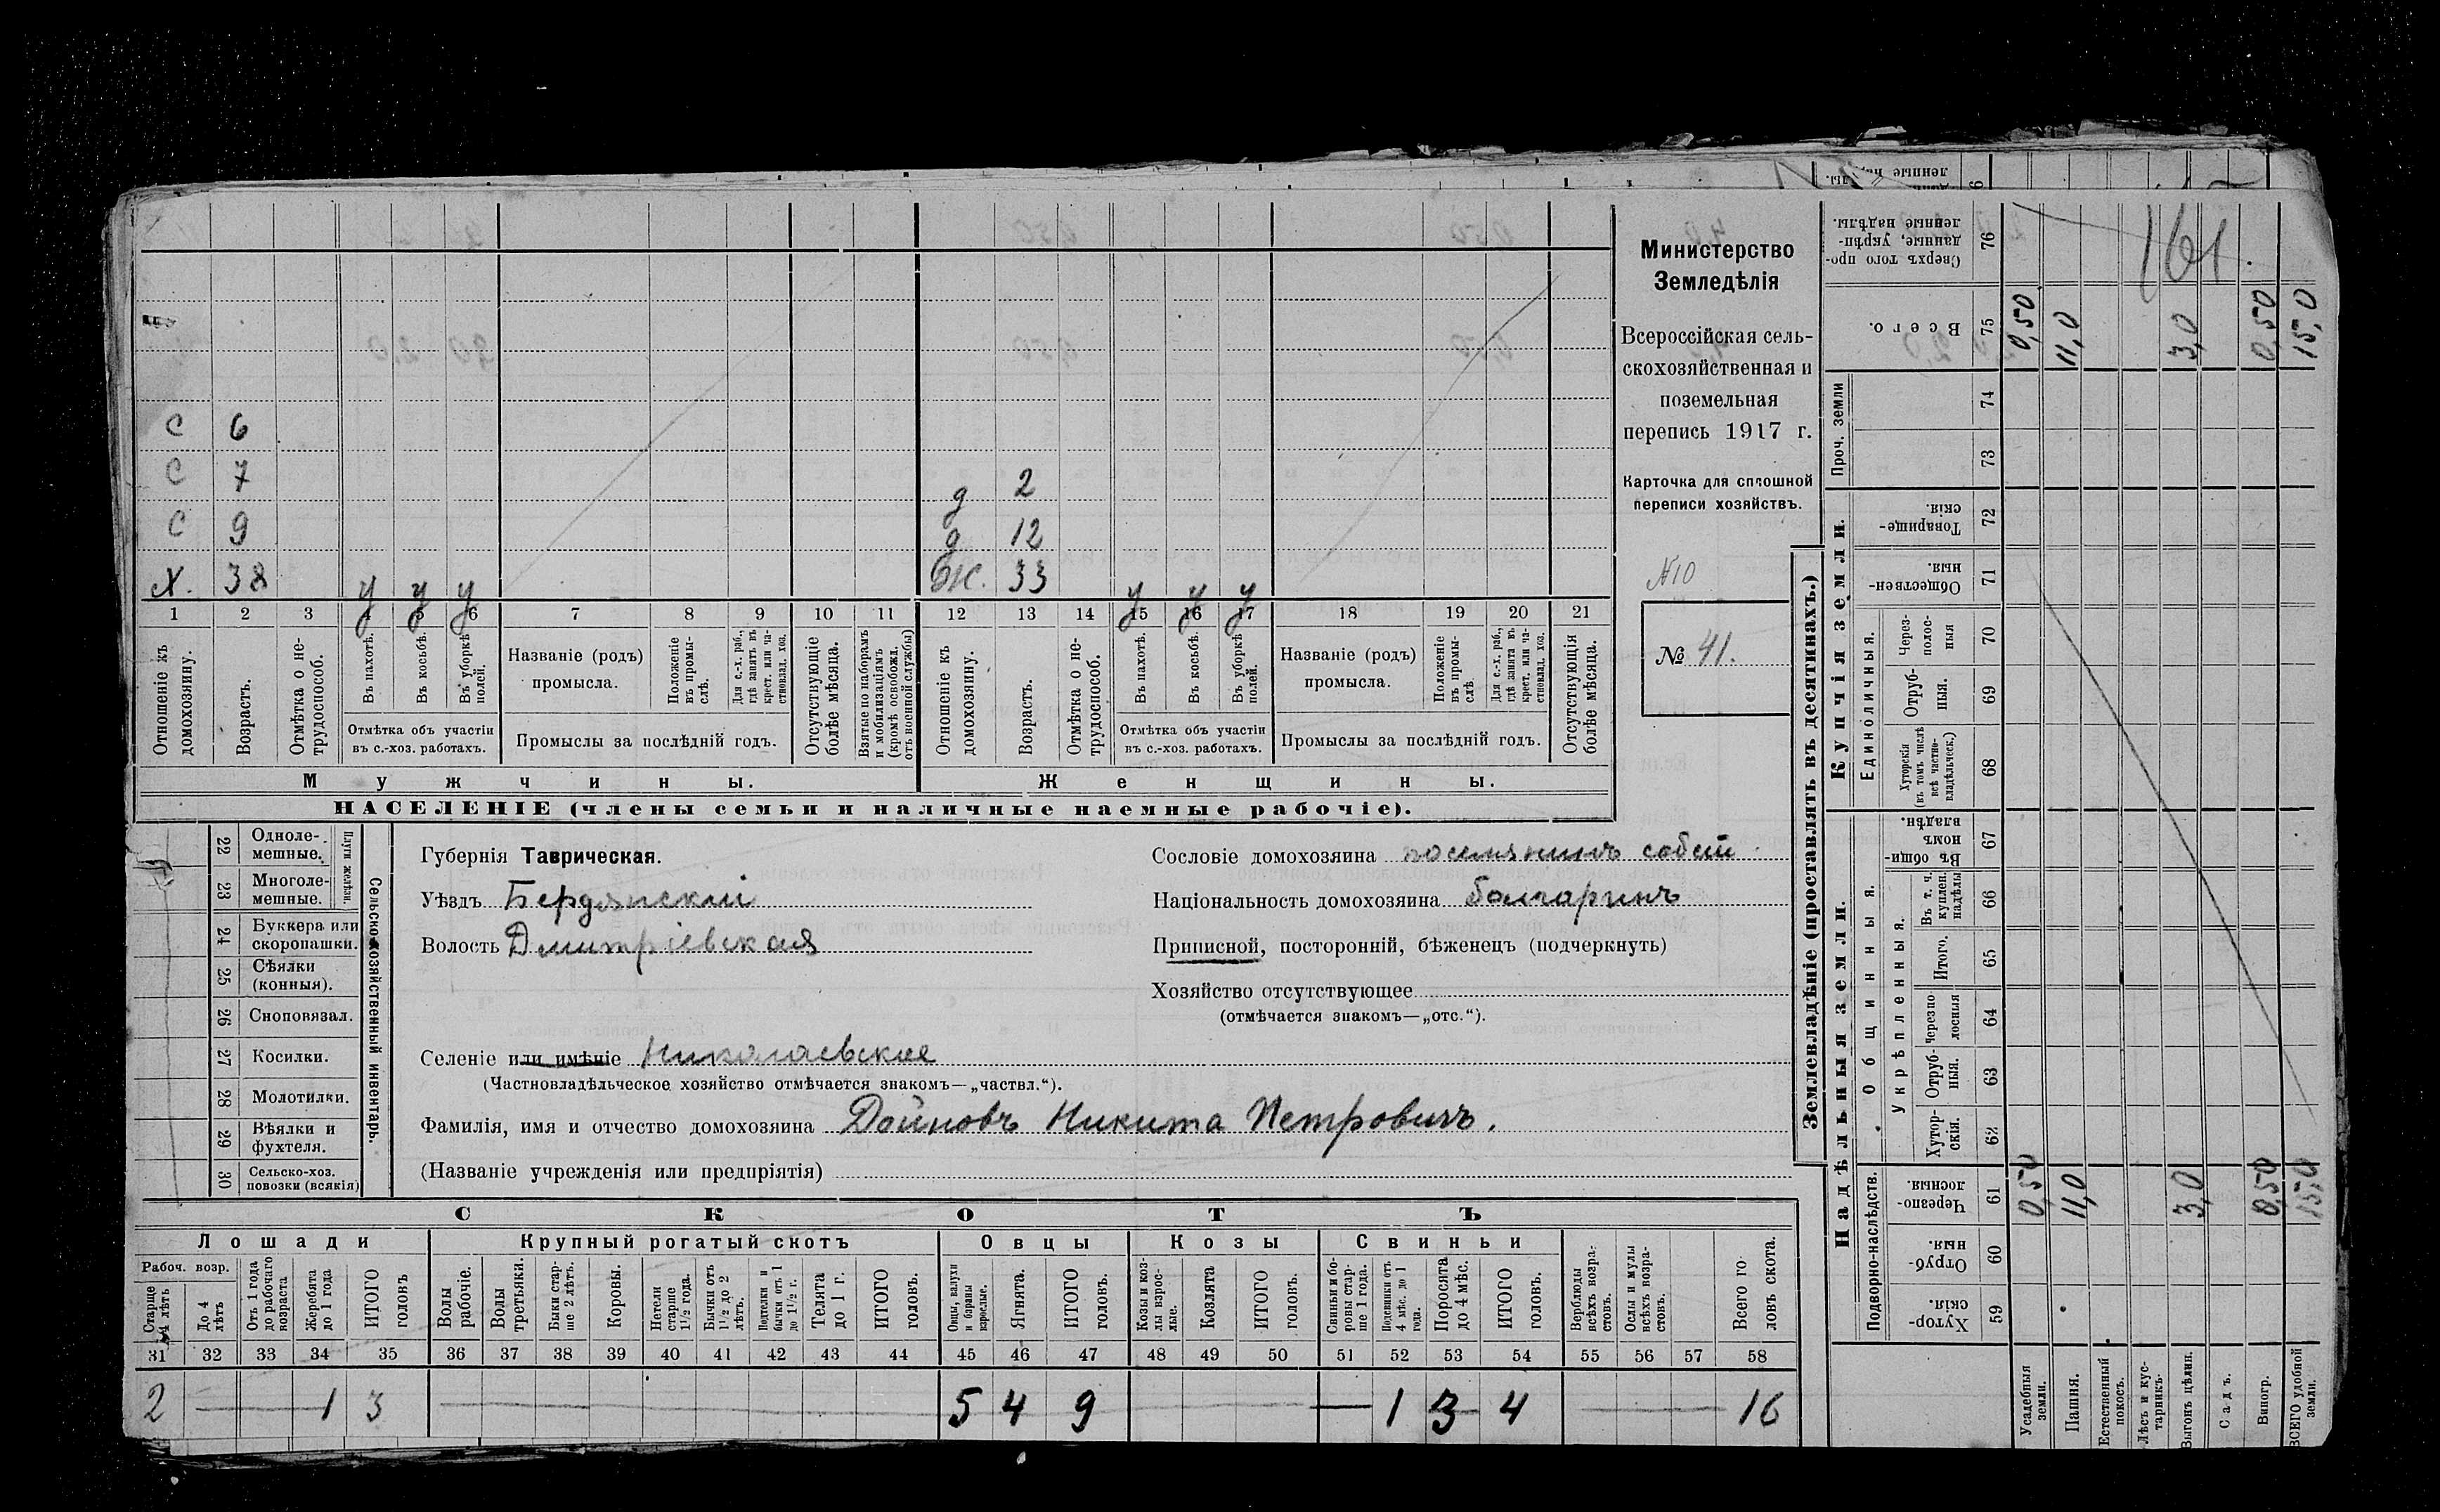 с 6
с 7 д 2
с 9 д 12
х. 38 у у у Ж. 33 у у у
1 2 3 4 5 6 7 8 9 10 11 12 13 14 15 16 17 18 19 20 21
Отношеніе къ домохозяину.
Возрастъ.
Отмѣтка о не-трудоспособ.
Въ пахотѣ.
Въ косьбѣ.
Въ уборкѣ полей.
Отмѣтка объ участіи
въ с.-хоз. работахъ.
Названіе (родъ)
промысла.
Положеніе въ промы-слѣ.
Для с.-х. раб., гдѣ занятъ въ крест. или ча-стновлад. хоз.
Промыслы за послѣдній годъ.
Отсутствующіе болѣе мѣсяца.
Взятые по наборамъ и мобилизаціямъ (кромѣ освобожд. отъ военной службы)
Отношеніе къ домохозяину.
Возрастъ.
Отмѣтка о не-трудоспособ.
Въ пахотѣ.
Въ косьбѣ.
Въ уборкѣ полей.
Отмѣтка объ участіи
въ с.-хоз. работахъ.
Названіе (родъ)
промысла.
Положеніе въ промы-слѣ
Для с.-х. раб., гдѣ занята въ крест. или ча-стновлад. хоз.
Промыслы за послѣдній годъ.
Отсутствующія болѣе мѣсяца.
Мужчины. Женщины.
НАСЕЛЕНІЕ (члены семьи и наличные наемные рабочіе).
Министерство
Земледѣлія
Всероссійская сель-
скохозяйственная и
поземельная
перепись 1917 г.
Карточка для сплошной
переписи хозяйствъ.
№10
№ 41.
Сельскохозяйственный инвентарь.
Плуги желѣзн.
22 Одноле-
мешные.
23 Многоле-
мешные.
24 Буккера или
скоропашки.
25 Сѣялки
(конныя).
26 Сноповязал.
27 Косилки.
28 Молотилки.
29 Вѣялки и
фухтеля.
30 Сельско-хоз.
повозки (всякія)
Губернія Таврическая.
Уѣздъ Бердянскій
Волость Дмитріевская
Селеніе или имѣніе Николаевское
(Частновладѣльческое хозяйство отмѣчается знакомъ—„частвл.“).
Фамилія, имя и отчество домохозяина Дойновъ Никита Петровичъ.
(Названіе учрежденія или предпріятія)
Сословіе домохозяина поселянинъ собст
Національность домохозяина болгаринъ
Приписной, посторонній, бѣженецъ (подчеркнуть)
Хозяйство отсутствующее
(отмѣчается знакомъ—„отс.“).
СКОТЪ
Лошади Крупный рогатый скотъ Овцы Козы Свиньи
Рабоч. возр.
Старше 4 лѣтъ
До 4 лѣтъ
Отъ 1 года до рабочаго возраста
Жеребята до 1 года
ИТОГО головъ
Волы рабочіе.
Волы третьяки.
Быки стар-ше 2 лѣтъ.
Коровы.
Нетели старше 1½ года.
Бычки отъ 1½ до 2 лѣтъ.
Подтелки и бычки отъ 1 до 1½ г.
Телята до 1 г.
ИТОГО головъ.
Овцы, валухи и бараны взрослые.
Ягнята.
ИТОГО головъ.
Козы и коз-лы взрос-лые.
Козлята
ИТОГО головъ.
Свиньи и бо-ровы стар-ше 1 года.
Подсвинки отъ 4 мѣс. до 1 года.
Поросята до 4 мѣс.
ИТОГО головъ.
Верблюды всѣхъ возра-стовъ.
Ослы и мулы всѣхъ возра-стовъ.
Всего го-ловъ скота.
31 32 33 34 35 36 37 38 39 40 41 42 43 44 45 46 47 48 49 50 51 52 53 54 55 56 57 58
2 — 1 3 — 5 4 9 — 1 3 4 — 16
Землевладѣніе (проставлять въ десятинахъ.)
Надѣльныя земли. Купчія земли. Проч. земли
Подворно-наслѣдств. Общинныя. Укрѣпленныя. Единоличныя.
76 Сверхъ того про-данные, укрѣп-ленные надѣлы.
75 Всего.
74
73
72 Товарище-скія.
71 Обществен-ныя.
70 Через-полос-ныя
69 Отруб-ныя.
68 Хуторскія (въ томъ числѣ всѣ частно-владѣльческ.)
67 Въ общин-номъ владѣн.
66 Въ т. ч. куплен. надѣлы
65 Итого.
64 Черезпо-лосныя
63 Отруб-ныя.
62 Хутор-скія.
61 Черезпо-лосныя.
60 Отруб-ныя.
59 Хутор-скія.
161.
0,50 11,0 3,0 0,50 15,0
0,50 11,0 3,0 0,50 15,0
Усадебныя земли.
Пашня.
Естественный покосъ.
Лѣсъ и кус-тарникъ.
Выгонъ цѣлин.
Садъ.
Виногр.
ВСЕГО удобной земли.